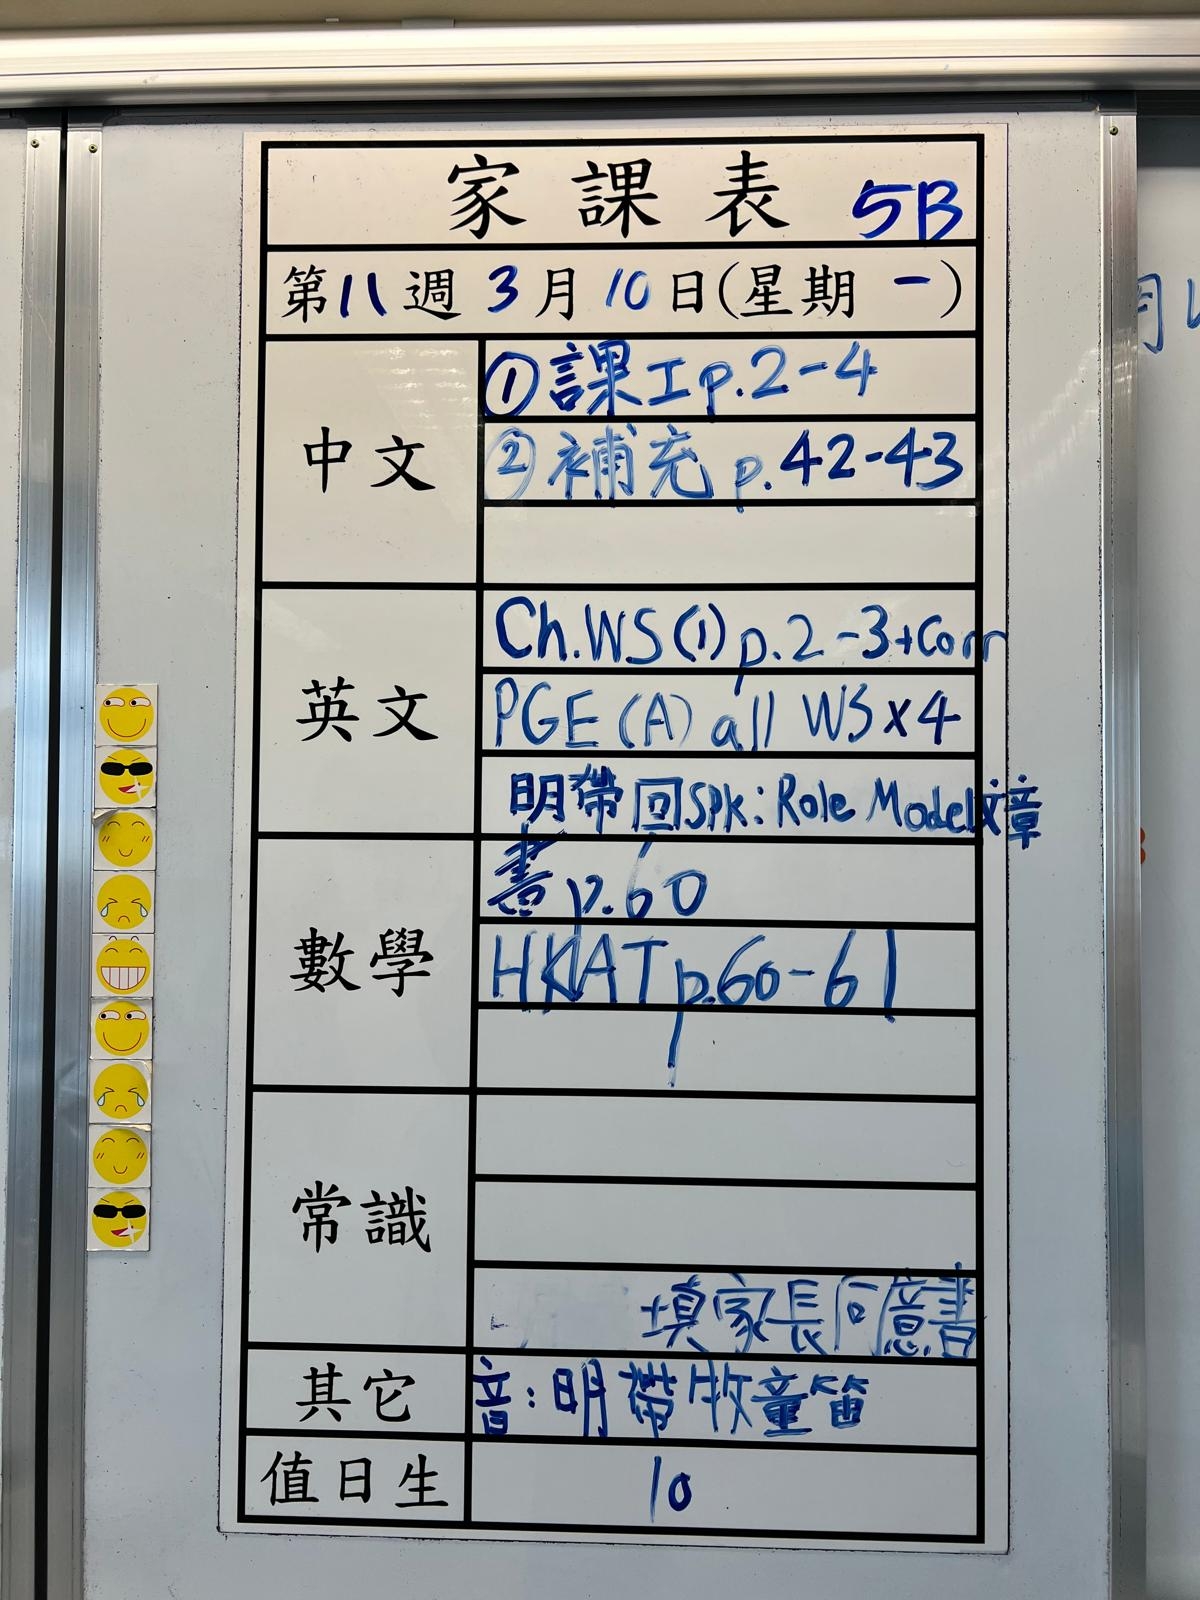 家課表 5B
第11週 3月10日(星期一)
中文
①課工p.2-4
②補充 p.42-43
英文
Ch.WS(1) p.2-3+Corr
PGE (A) all WS x4
明帶回Spk: Role Model文章
數學
書p.60
HKAT p.60-61
常識
填家長同意書
其它
音:明帶牧童笛
值日生
10